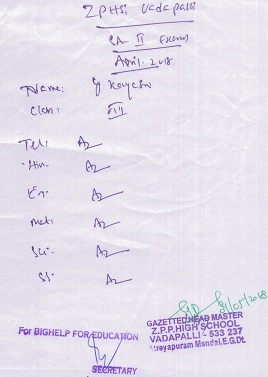 ZPHS Vadapalli
SA II Exams
April-2018
Name:
Class: VIII
Tel: A2
Hin: A2
En: A2
Mat: A2
Sci: A2
SS: A2
For BIGHELP FOR EDUCATION
SECRETARY
GAZETTED HEAD MASTER
Z.P.P.HIGH SCHOOL
VADAPALLI - 533 237
Atreyapuram Mandal,E.G.Dt.